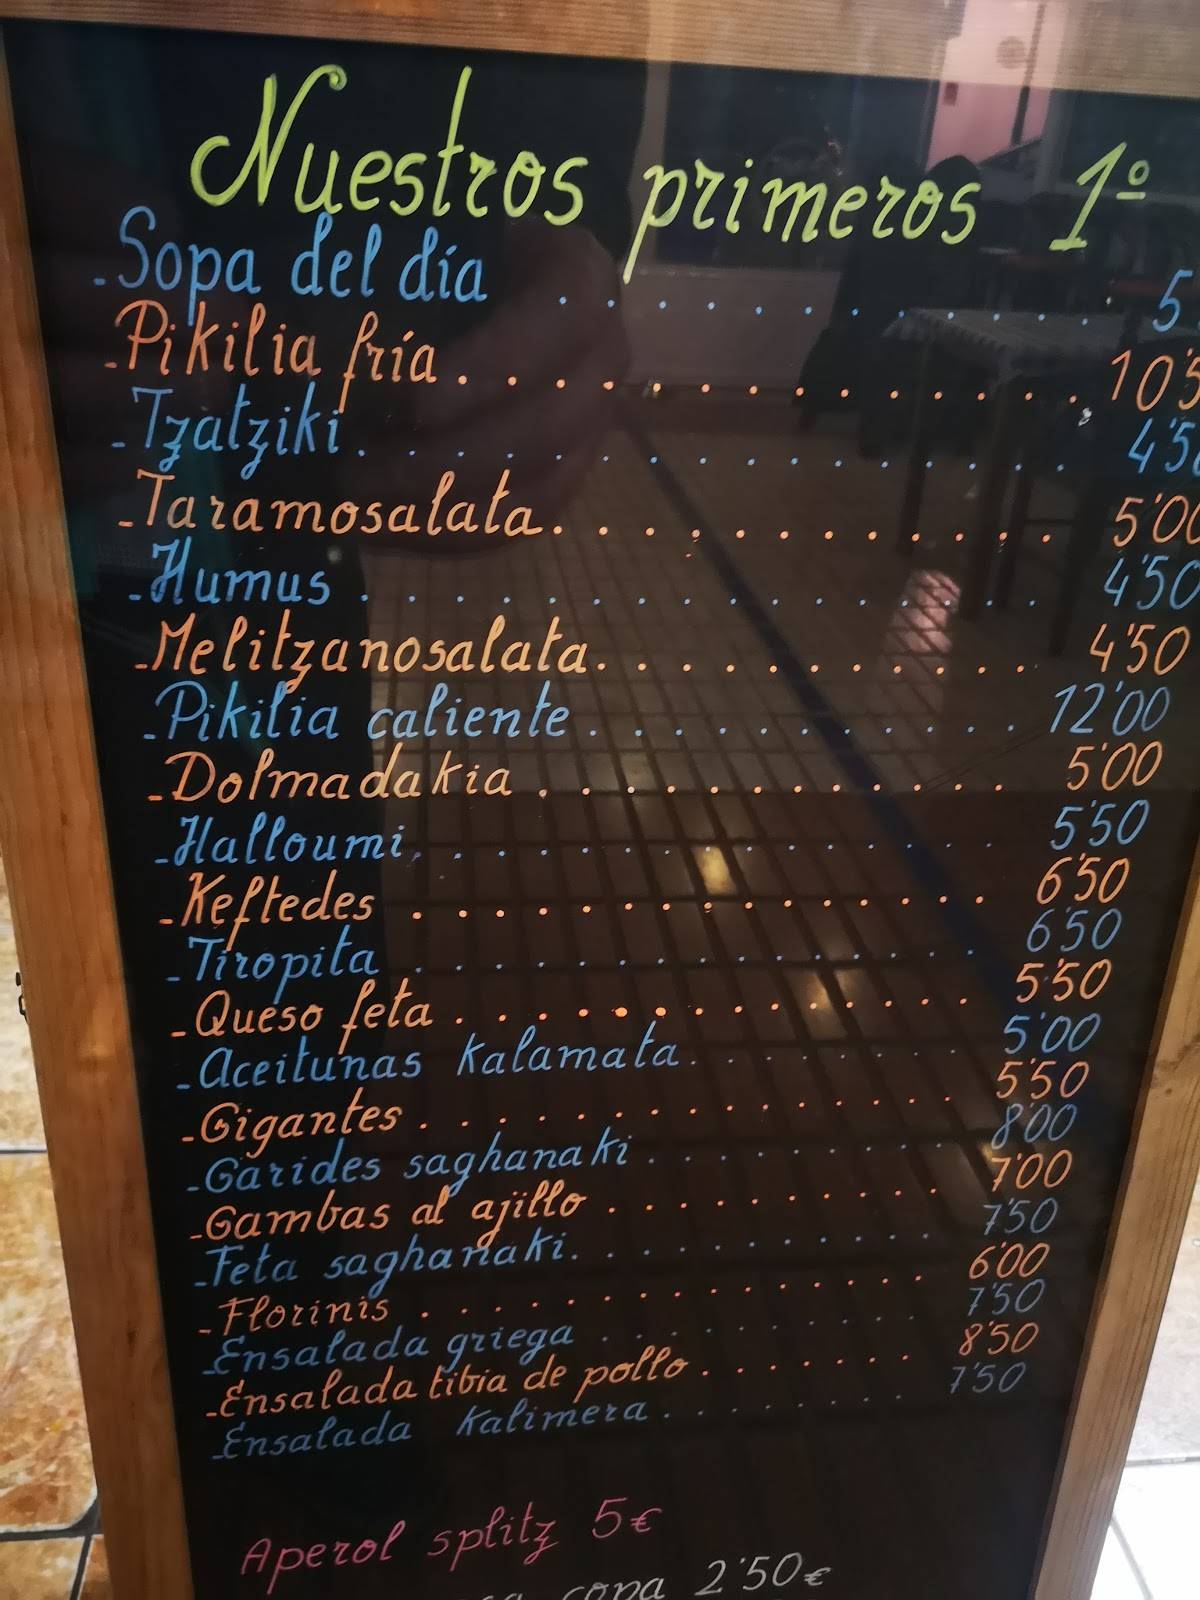 Nuestros primeros 1º
-Sopa del día . . . . . . . . . . . 5
-Pikilia fría . . . . . . . . . . . . . 10'5
-Tzatziki . . . . . . . . . . . . . . . 4'5
-Taramosalata . . . . . . . . . . . 5'00
-Humus . . . . . . . . . . . . . . . 4'50
-Melitzanosalata . . . . . . . . . . 4'50
-Pikilia caliente . . . . . . . . . . 12'00
-Dolmadakia . . . . . . . . . . . 5'00
-Halloumi . . . . . . . . . . . . . . 5'50
-Keftedes . . . . . . . . . . . . . . 6'50
-Tiropita . . . . . . . . . . . . . . 6'50
-Queso feta . . . . . . . . . . . . . 5'50
-Aceitunas Kalamata . . . . . . . 5'00
-Gigantes . . . . . . . . . . . . . . 5'50
-Garides saghanaki . . . . . . . . 8'00
-Gambas al ajillo . . . . . . . . . 7'00
-Feta saghanaki . . . . . . . . . . 7'50
-Florinis . . . . . . . . . . . . . . 6'00
-Ensalada griega . . . . . . . . . 7'50
-Ensalada tibia de pollo . . . . . . 8'50
-Ensalada Kalimera . . . . . . . . 7'50
Aperol splitz 5€
copa 2'50€